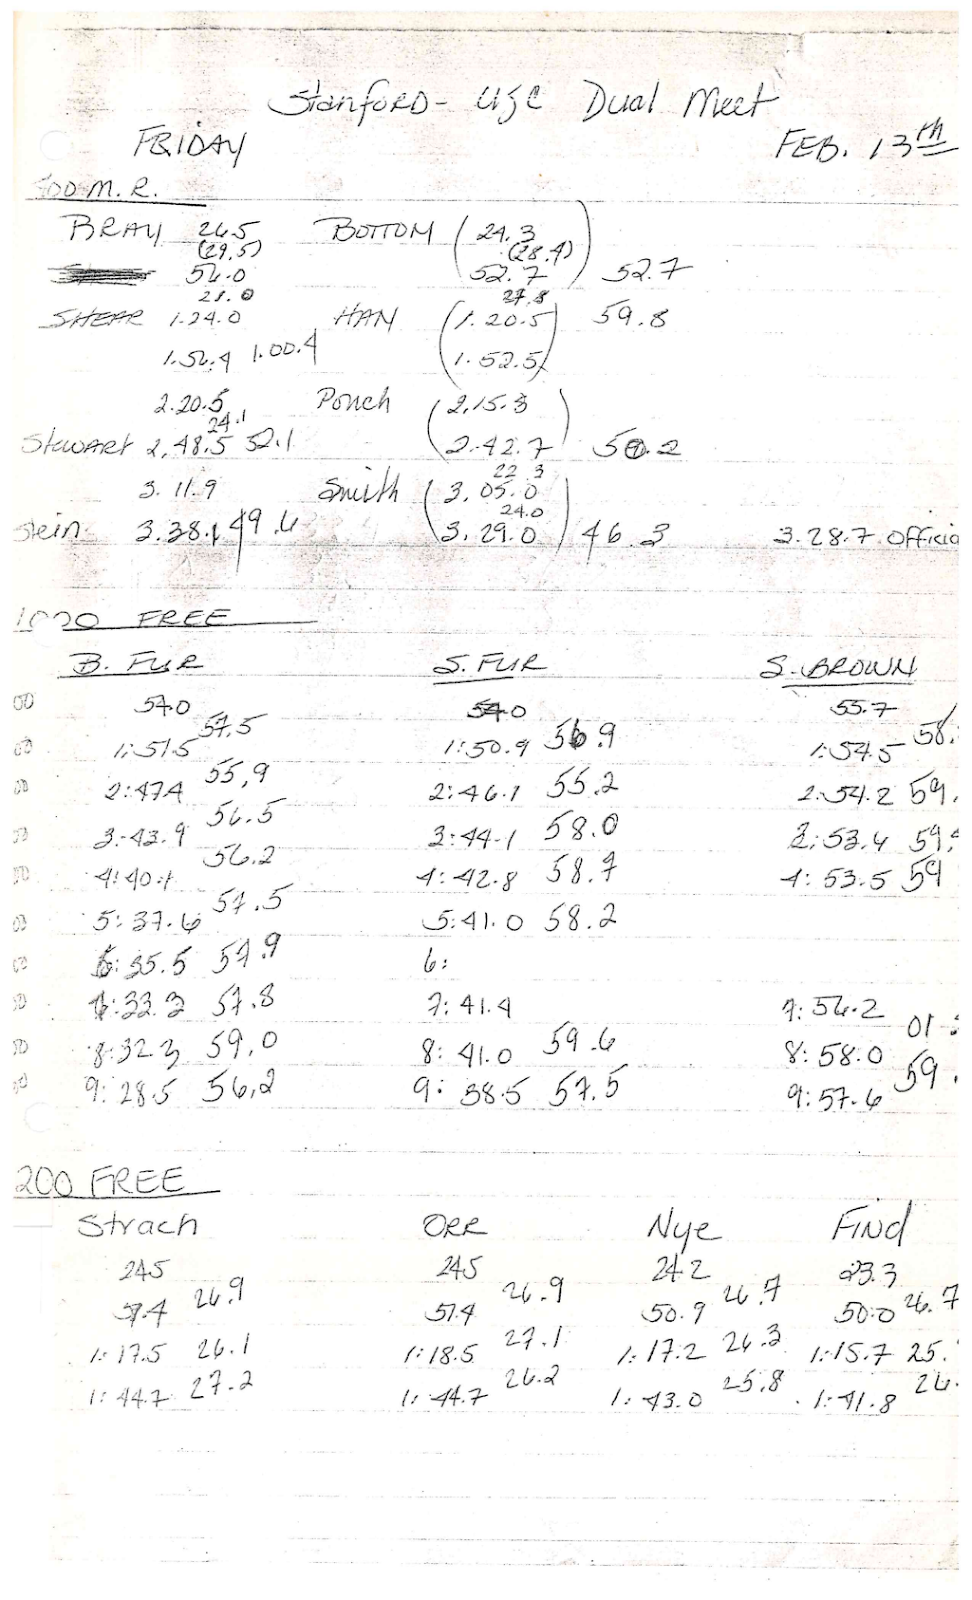 Stanford - USC Dual Meet
FRIDAY FEB. 13th
400 M. R.
BRAY 26.5 BOTTOM 24.3
(29.5) (28.4)
56.0 52.7 52.7
28.0 27.8
SHEAR 1.24.0 HAN 1.20.5 59.8
1.56.4 1.00.4 1.52.5
2.20.5 Ponch 2.15.3
24.1
Stewart 2,48.5 52.1 2.42.7 50.2
22 3
3. 11.9 Smith 3.05.0
24.0
Stein 3.38.1 49.6 3.29.0 46.3 3.28.7 Officia
1000 FREE
B. FUR S. FUR S. BROWN
00 54.0 54.0 55.7
00 1:51.5 57.5 1:50.9 56.9 1:54.5 58.
00 2:47.4 55.9 2:46.1 55.2 2:54.2 59.
00 3:43.9 56.5 3:44.1 58.0 3:53.4 59.
00 4:40.1 56.2 4:42.8 58.7 4:53.5 59
00 5:37.6 57.5 5:41.0 58.2
00 6:35.5 57.9 6:
00 7:33.3 57.8 7:41.4 7:56.2
00 8:32.3 59.0 8:41.0 59.6 8:58.0 01.
00 9:28.5 56.2 9:38.5 57.5 9:57.6 59.
200 FREE
Strach ORR Nye FIND
24.5 24.5 24.2 23.3
51.4 26.9 51.4 26.9 50.9 26.7 50.0 26.7
1:17.5 26.1 1:18.5 27.1 1:17.2 26.3 1:15.7 25.
1:44.7 27.2 1:44.7 26.2 1:43.0 25.8 1:41.8 26.